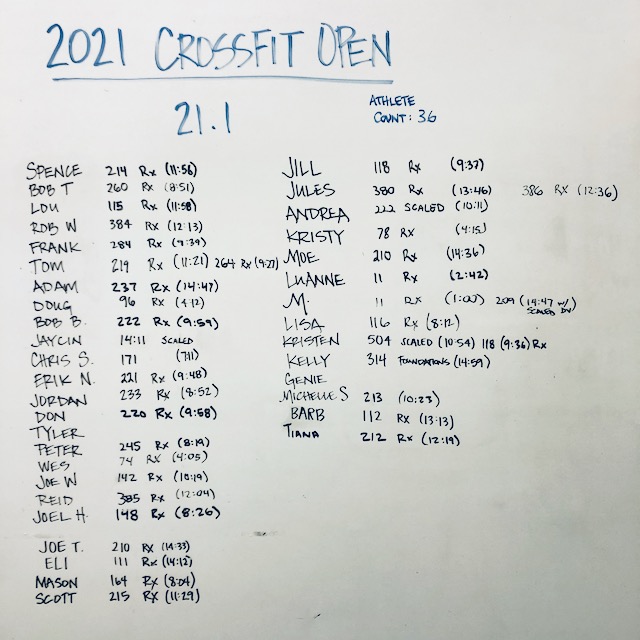 2021 CROSSFIT OPEN
21.1
ATHLETE
COUNT: 36
SPENCE 214 Rx (11:56)
BOB T 260 Rx (8:51)
LOU 115 Rx (11:58)
ROB W 384 Rx (12:13)
FRANK 284 Rx (9:39)
TOM 219 Rx (11:21) 264 Rx (9:27)
ADAM 237 Rx (14:47)
DOUG 96 Rx (4:12)
BOB B. 222 Rx (9:59)
JAYLIN 14:11 SCALED
CHRIS S. 171 (7:11)
ERIK N. 221 Rx (9:48)
JORDAN 233 Rx (8:52)
DON 220 Rx (9:58)
TYLER
PETER 245 Rx (8:19)
WES 74 Rx (4:05)
JOE W 142 Rx (10:19)
REID 385 Rx (12:04)
JOEL H. 148 Rx (8:26)
JOE T. 210 Rx (14:33)
ELI 111 Rx (14:12)
MASON 164 Rx (8:04)
SCOTT 215 Rx (11:29)
JILL 118 Rx (9:37)
JULES 380 Rx (13:46) 386 Rx (12:36)
ANDREA 222 SCALED (10:11)
KRISTY 78 Rx (4:15)
MOE 210 Rx (14:36)
LUANNE 11 Rx (2:42)
M. 11 Rx (1:00) 209 (14:47 w/
SCALED DU)
LISA 116 Rx (8:12)
KRISTEN 504 SCALED (10:54) 118 (9:36) Rx
KELLY 314 FOUNDATIONS (14:59)
GENIE
MICHELLE S 213 (10:23)
BARB 112 Rx (13:13)
TIANA 212 Rx (12:19)